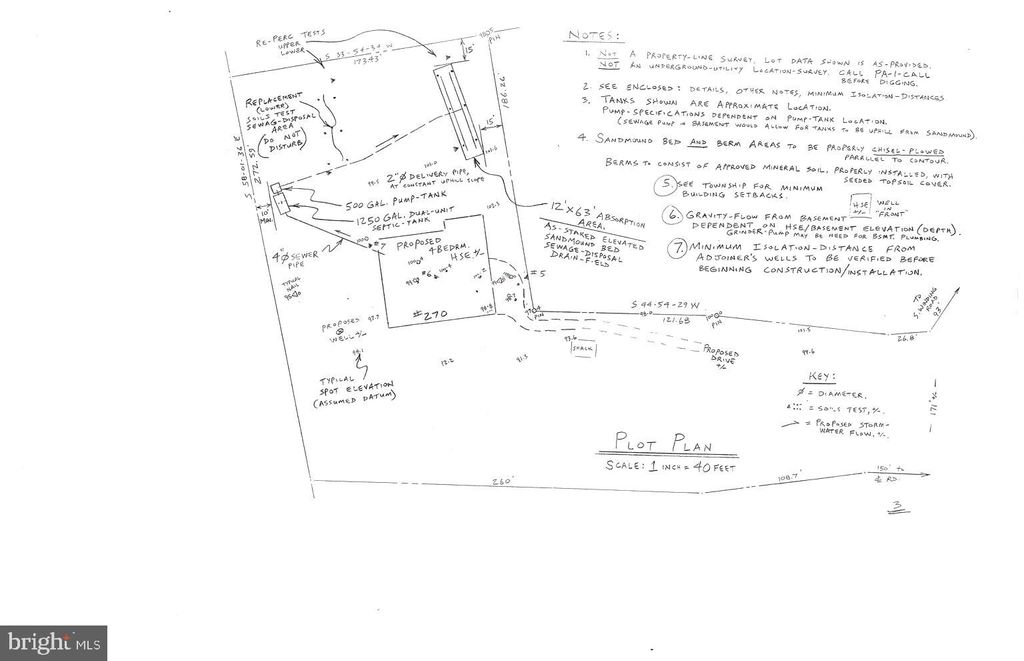 RE-PERC TESTS
UPPER
LOWER
S 33-54-34 W
173.43'
PIN
15'
186.26'
15'
REPLACEMENT
(LOWER)
SOILS TEST
SEWAG-DISPOSAL
AREA
(DO NOT
DISTURB)
S 58-01-36 E
272.59'
10'
MIN.
2"Ø DELIVERY PIPE,
AT CONSTANT UPHILL SLOPE
500 GAL. PUMP-TANK
1250 GAL. DUAL-UNIT
SEPTIC-TANK
4"Ø SEWER
PIPE
TYPICAL
NAIL
PROPOSED
4 BEDRM.
HSE. +/-
#6
#5
#270
12' X 63' ABSORPTION
AREA.
AS-STAKED ELEVATED
SANDMOUND BED
SEWAGE-DISPOSAL
DRAIN-FIELD
PROPOSED
@
WELL +/-
TYPICAL
SPOT ELEVATION
(ASSUMED DATUM)
S 44-54-29 W
121.68
PIN
PIN
SHACK
PROPOSED
DRIVE
+/-
26.8'
TO
S. WINDING
ROAD
93'
171' +/-
NOTES:
1. NOT A PROPERTY-LINE SURVEY. LOT DATA SHOWN IS AS-PROVIDED.
NOT AN UNDERGROUND-UTILITY LOCATION-SURVEY. CALL PA-1-CALL
BEFORE DIGGING.
2. SEE ENCLOSED: DETAILS, OTHER NOTES, MINIMUM ISOLATION-DISTANCES
3. TANKS SHOWN ARE APPROXIMATE LOCATION.
PUMP-SPECIFICATIONS DEPENDENT ON PUMP-TANK LOCATION.
(SEWAGE PUMP BASEMENT WOULD ALLOW FOR TANKS TO BE UPHILL FROM SANDMOUND).
4. SANDMOUND BED AND BERM AREAS TO BE PROPERLY CHISEL-PLOWED
PARALLEL TO CONTOUR.
BERMS TO CONSIST OF APPROVED MINERAL SOIL, PROPERLY INSTALLED, WITH
SEEDED TOPSOIL COVER.
5. SEE TOWNSHIP FOR MINIMUM
BUILDING SETBACKS.
HSE
+/-
WELL
IN
"FRONT"
6. GRAVITY-FLOW FROM BASEMENT
DEPENDENT ON HSE/BASEMENT ELEVATION (DEPTH).
GRINDER-PUMP MAY BE NEED FOR BSMT. PLUMBING.
7. MINIMUM ISOLATION-DISTANCE FROM
ADJOINER'S WELLS TO BE VERIFIED BEFORE
BEGINNING CONSTRUCTION/INSTALLATION.
KEY:
Ø = DIAMETER.
= SOILS TEST, +/-.
= PROPOSED STORM-
WATER FLOW, +/-.
PLOT PLAN
SCALE: 1 INCH = 40 FEET
260'
108.7'
150' TO
RD.
3
bright MLS